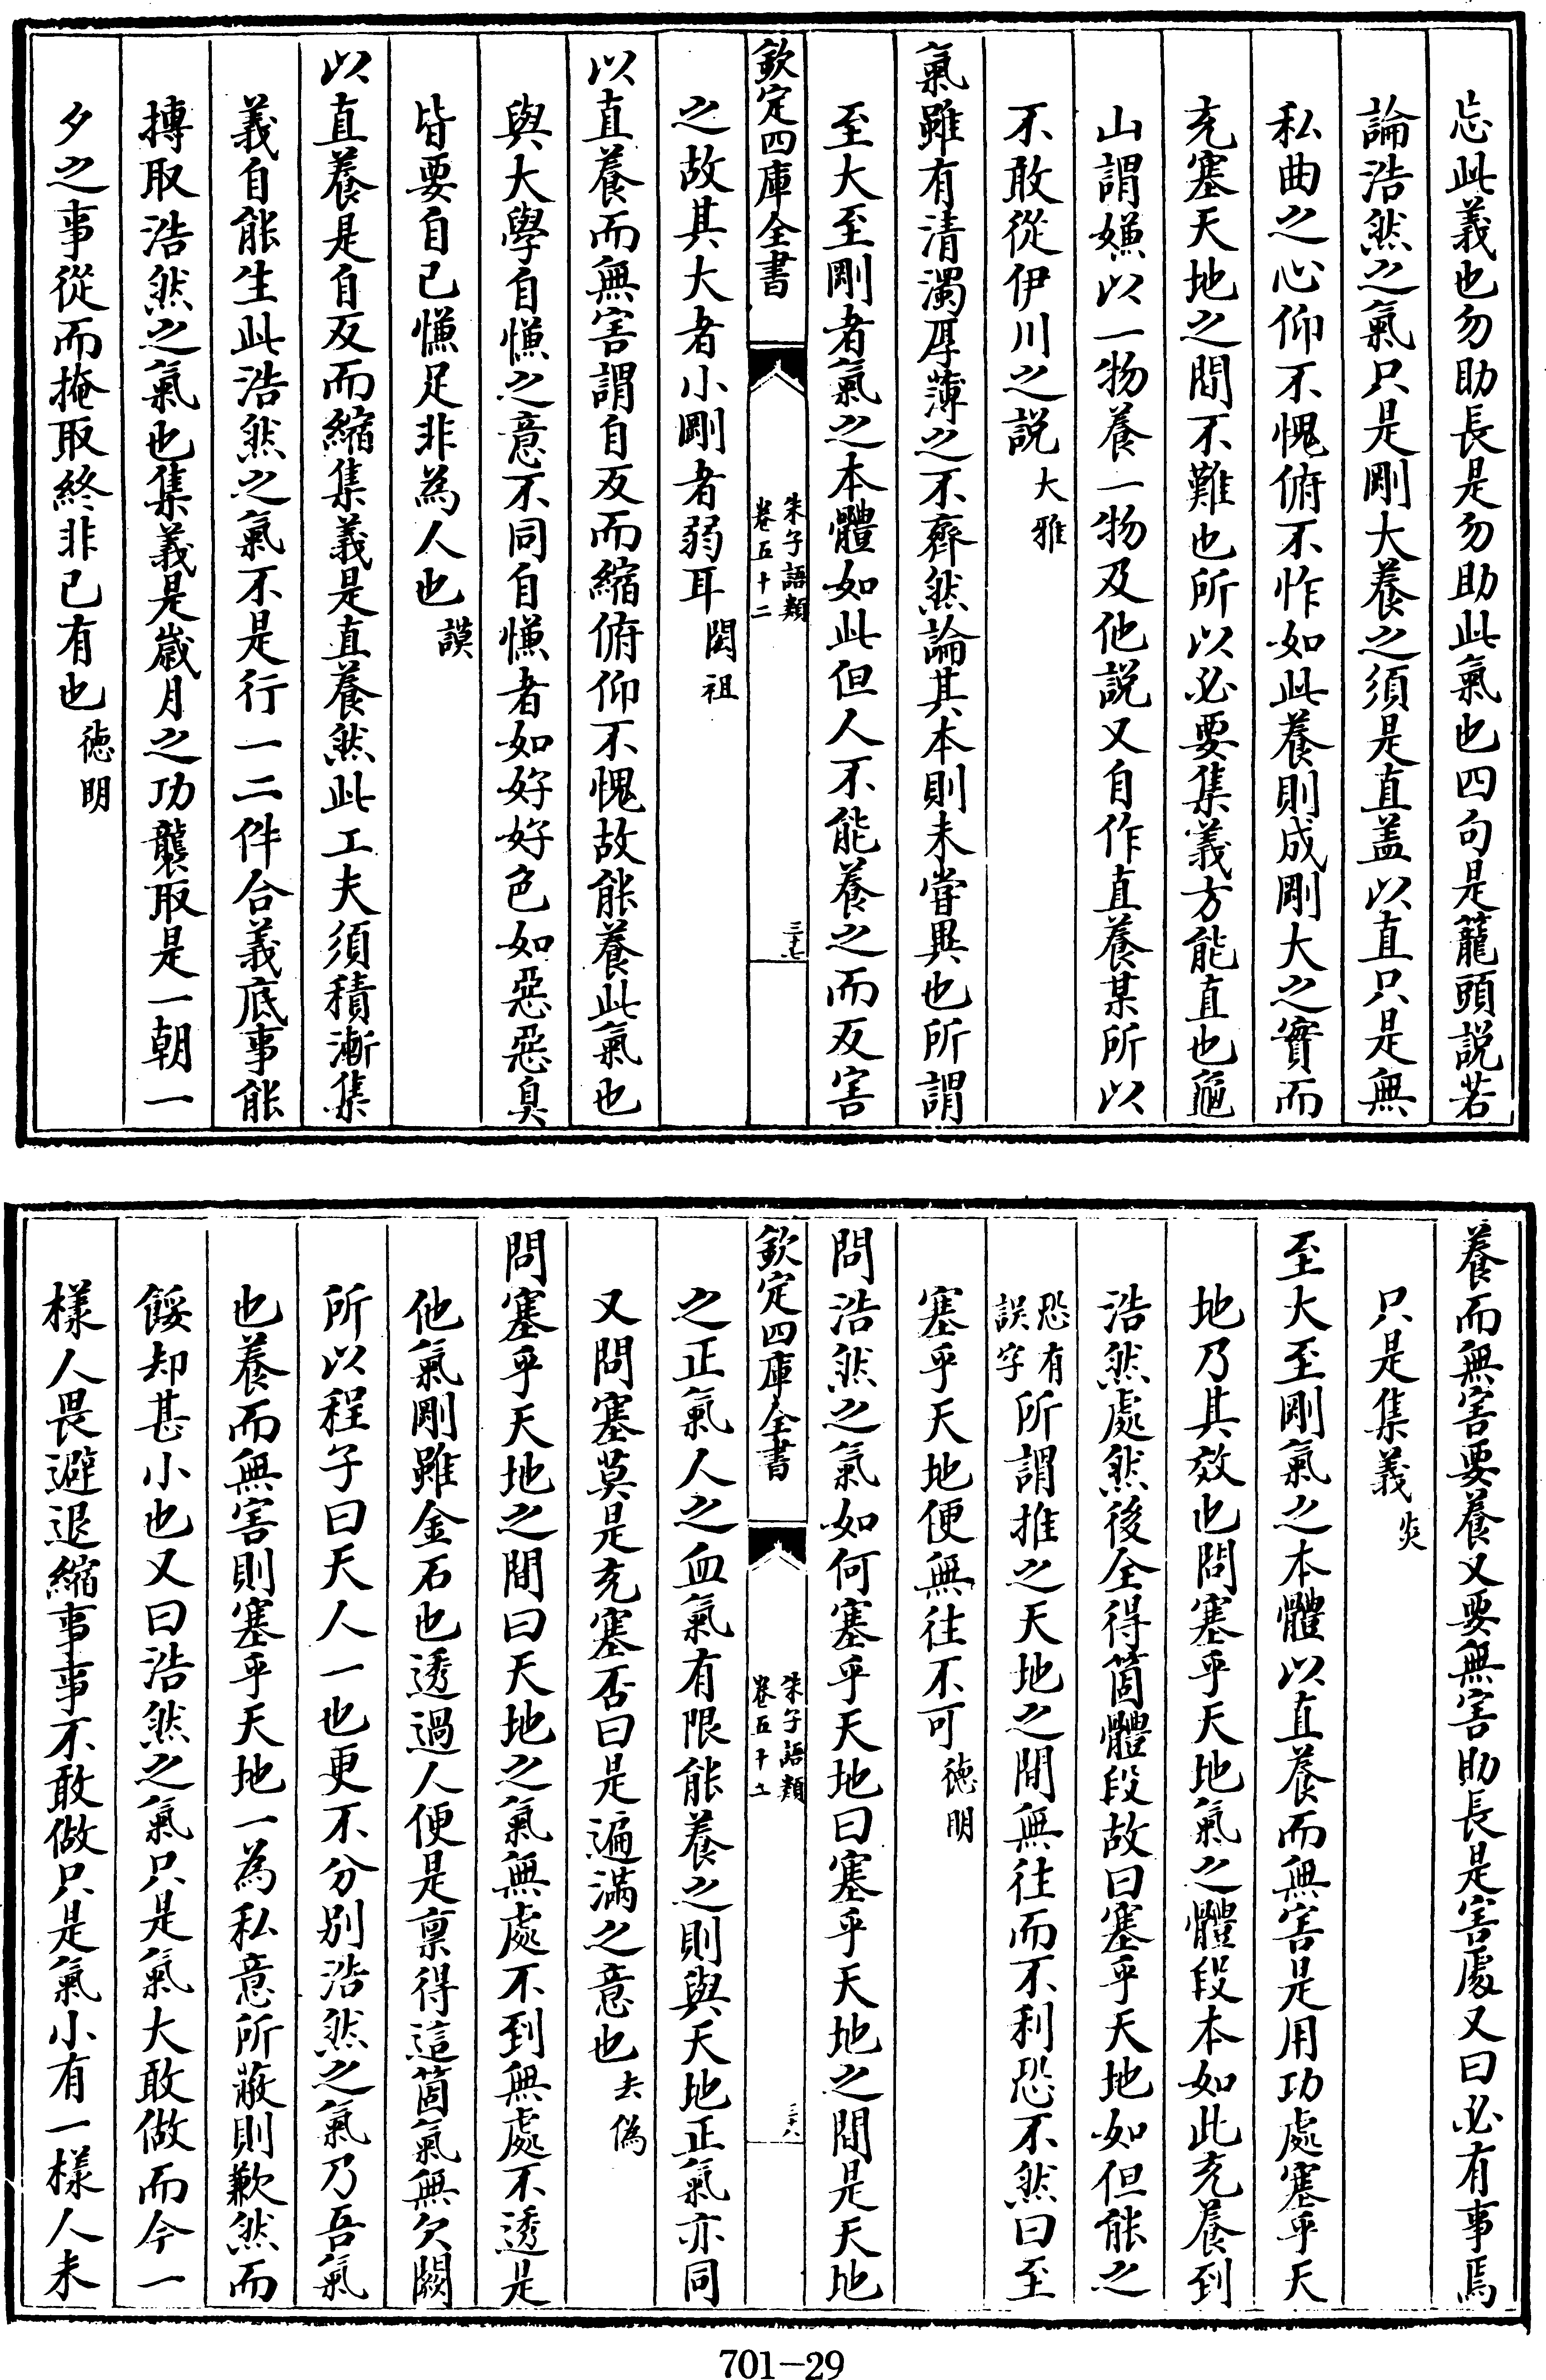 忘此義也勿助長是勿助此氣也四句是籠頭説若
論浩然之氣只是剛大養之須是直盖以直只是無
私曲之心仰不愧俯不怍如此養則成剛大之實而
充塞天地之間不難也所以必要集義方能直也龜
山謂嫌以一物養一物及他説又自作直養某所以
不敢從伊川之説大雅
氣雖有清濁厚薄之不齊然論其本則未嘗異也所謂
至大至剛者氣之本體如此但人不能養之而反害
欽定四庫全書
朱子語類
卷五十二
三十七
之故其大者小剛者弱耳閎祖
以直養而無害謂自反而縮俯仰不愧故能養此氣也
與大學自慊之意不同自慊者如好好色如惡惡臭
皆要自已慊足非為人也謨
以直養是自反而縮集義是直養然此工夫須積漸集
義自能生此浩然之氣不是行一二件合義底事能
摶取浩然之氣也集義是嵗月之功襲取是一朝一
夕之事從而掩取終非已有也徳明
養而無害要養又要無害助長是害處又曰必有事焉
只是集義炎
至大至剛氣之本體以直養而無害是用功處塞乎天
地乃其效也問塞乎天地氣之體段本如此充養到
浩然處然後全得箇體段故曰塞乎天地如但能之
恐有誤字所謂推之天地之間無往而不利恐不然曰至
塞乎天地便無往不可徳明
問浩然之氣如何塞乎天地曰塞乎天地之間是天地
欽定四庫全書
朱子語類
卷五十二
三十八
之正氣人之血氣有限能養之則與天地正氣亦同
又問塞莫是充塞否曰是遍滿之意也去偽
問塞乎天地之間曰天地之氣無處不到無處不透是
他氣剛雖金石也透過人便是禀得這箇氣無欠闕
所以程子曰天人一也更不分别浩然之氣乃吾氣
也養而無害則塞乎天地一為私意所蔽則歉然而
餒却甚小也又曰浩然之氣只是氣大敢做而今一
樣人畏避退縮事事不敢做只是氣小有一樣人未
701-29